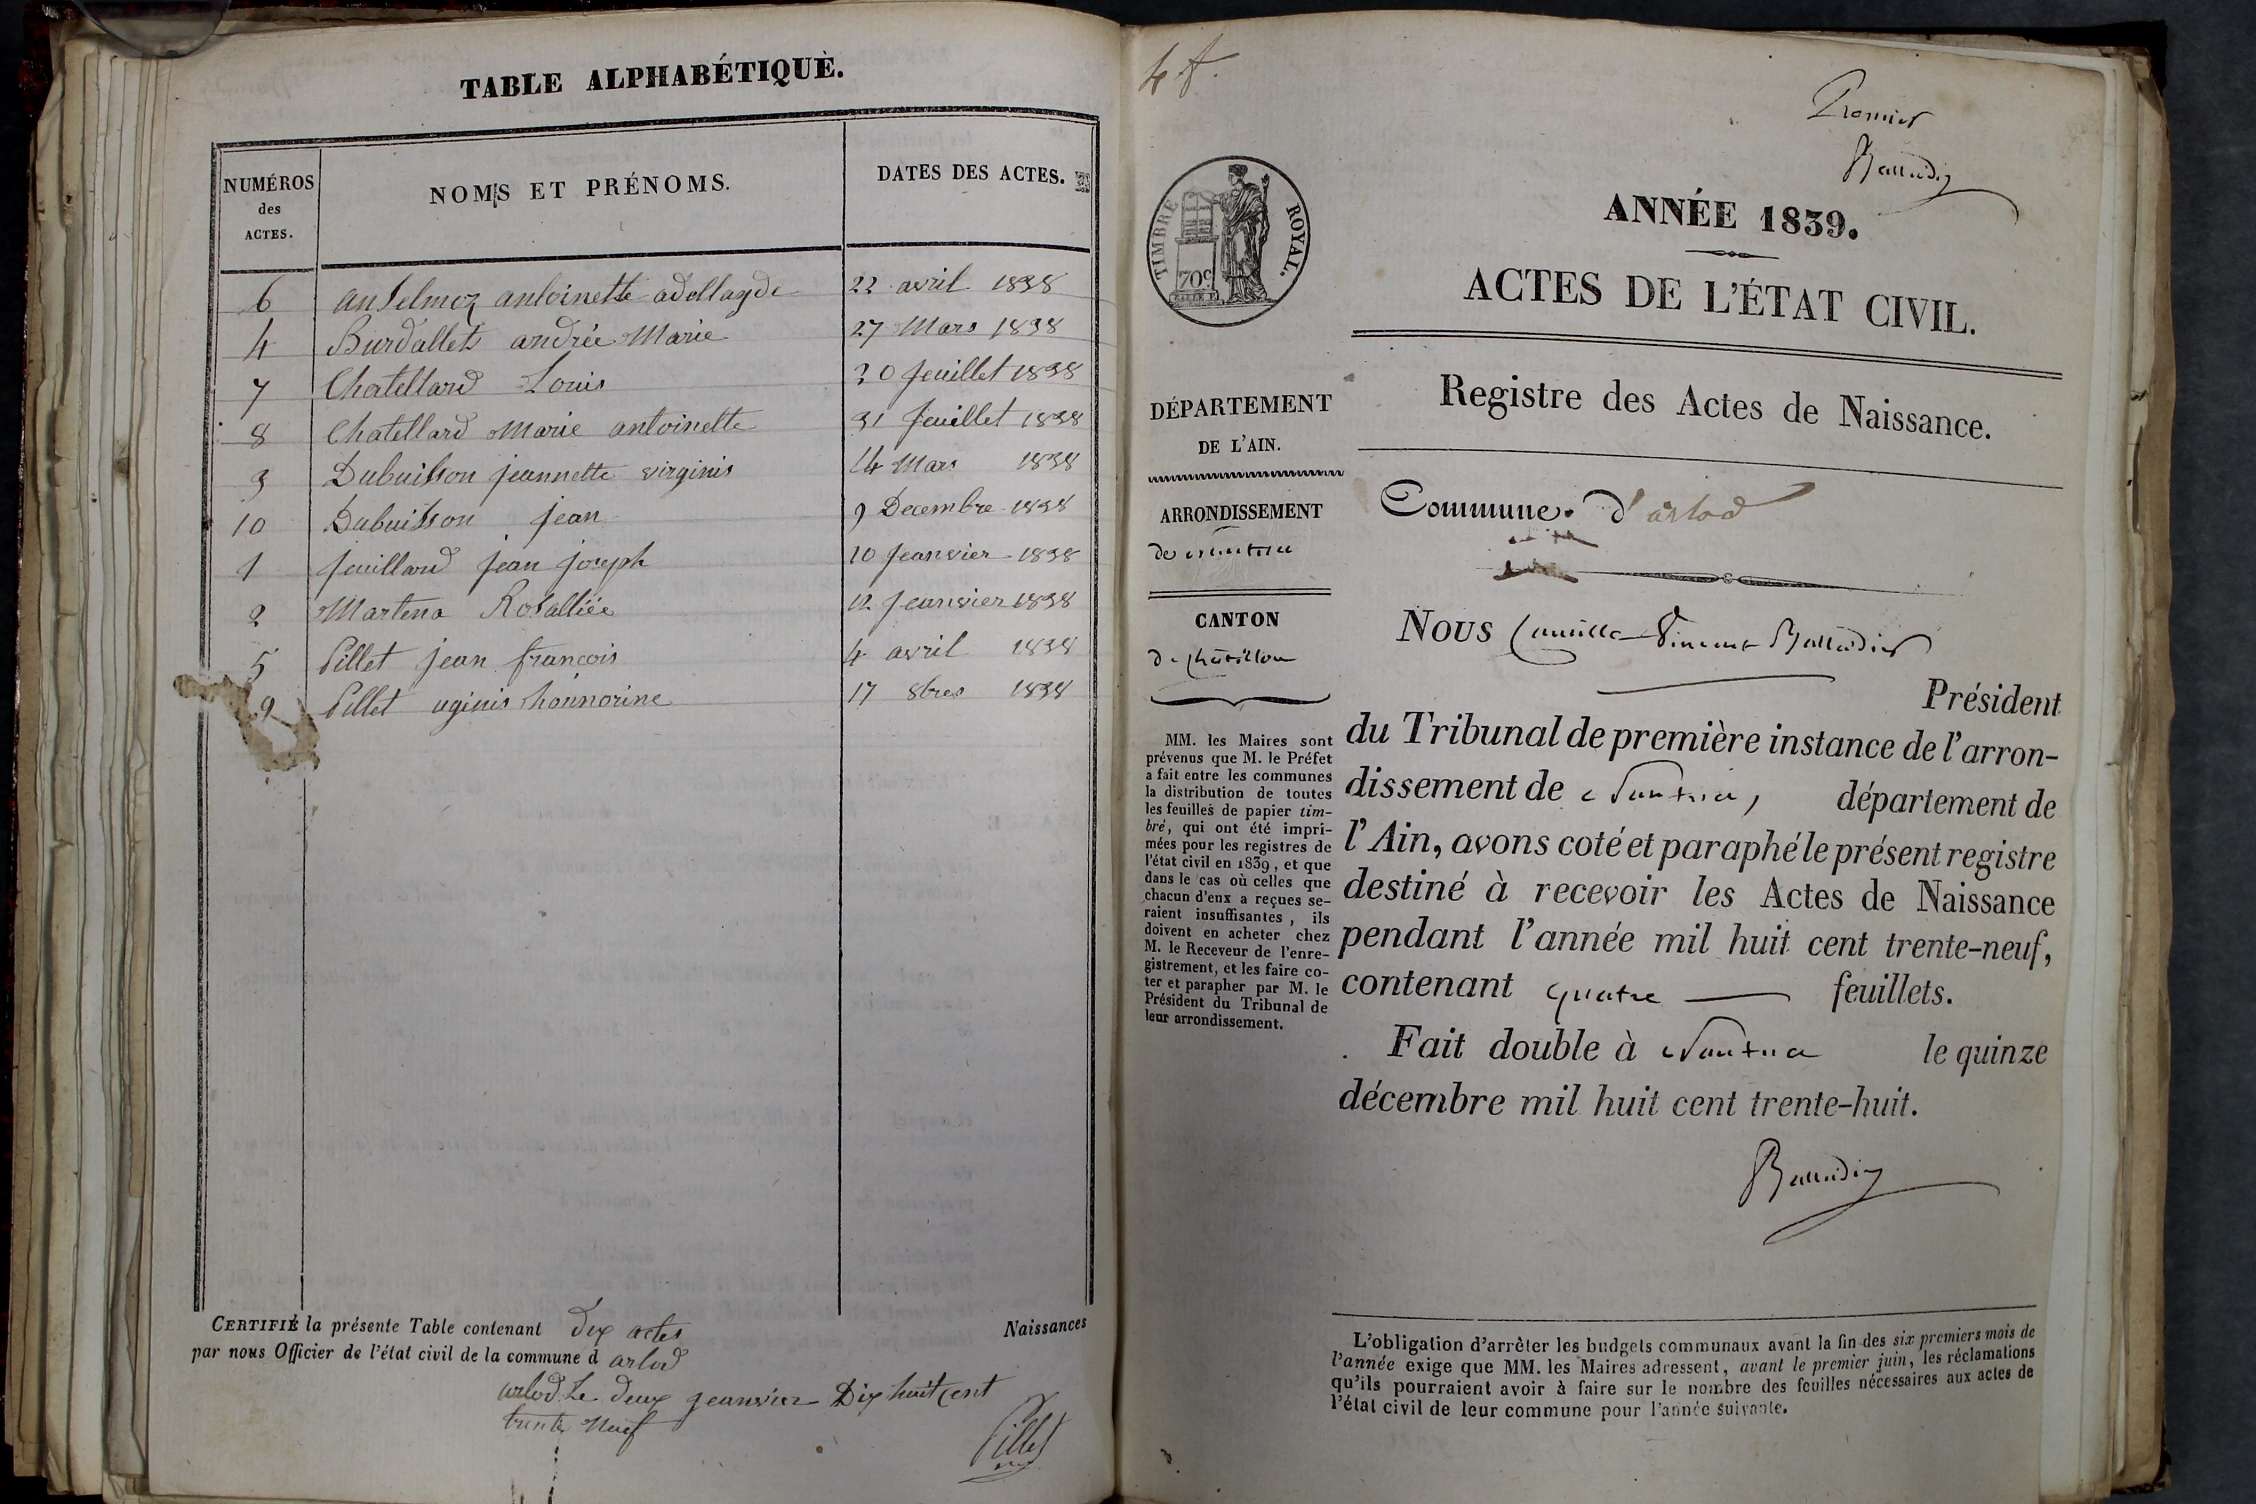 TABLE ALPHABÉTIQUE.
NUMÉROS des ACTES. NOMS ET PRÉNOMS. DATES DES ACTES.
6 anselmoz antoinette adellayde 22 avril 1838
4 Burdallet andrée Marie 27 Mars 1838
7 Chatellard Louis 30 Jeuillet 1838
8 Chatellard Marie antoinette 31 Jeuillet 1838
3 Dubuisson jeannette virginis 14 Mars 1838
10 Dubuisson jean 9 Decembre 1838
1 Juillard jean joseph 10 Jeanvier 1838
2 Martena Rosalliée 12 Jeanvier 1838
5 Pillet jean francois 4 avril 1838
9 Pillet uginis honnorine 17 8bres 1838
CERTIFIÉ la présente Table contenant dix actes Naissances
par nous Officier de l'état civil de la commune d arlod
arlod Le deux jeanvier Dix huit cent
trente Neuf
Pillet
Premier
TIMBRE ROYAL.
70c
ANNÉE 1839.
ACTES DE L'ÉTAT CIVIL.
Registre des Actes de Naissance.
DÉPARTEMENT
DE L'AIN.
ARRONDISSEMENT
de nantua
CANTON
de châtillon
MM. les Maires sont
prévenus que M. le Préfet
a fait entre les communes
la distribution de toutes
les feuilles de papier tim-
bré, qui ont été impri-
mées pour les registres de
l'état civil en 1839, et que
dans le cas où celles que
chacun d'enx a reçues se-
raient insuffisantes, ils
doivent en acheter chez
M. le Receveur de l'enre-
gistrement, et les faire co-
ter et parapher par M. le
Président du Tribunal de
leur arrondissement.
Commune d'arlod
Nous Camille Vincent
Président
du Tribunal de première instance de l'arron-
dissement de Nantua, département de
l'Ain, avons coté et paraphé le présent registre
destiné à recevoir les Actes de Naissance
pendant l'année mil huit cent trente-neuf,
contenant quatre feuillets.
Fait double à Nantua le quinze
décembre mil huit cent trente-huit.
L'obligation d'arrêter les budgets communaux avant la fin des six premiers mois de
l'année exige que MM. les Maires adressent, avant le premier juin, les réclamations
qu'ils pourraient avoir à faire sur le nombre des feuilles nécessaires aux actes de
l'état civil de leur commune pour l'année suivante.